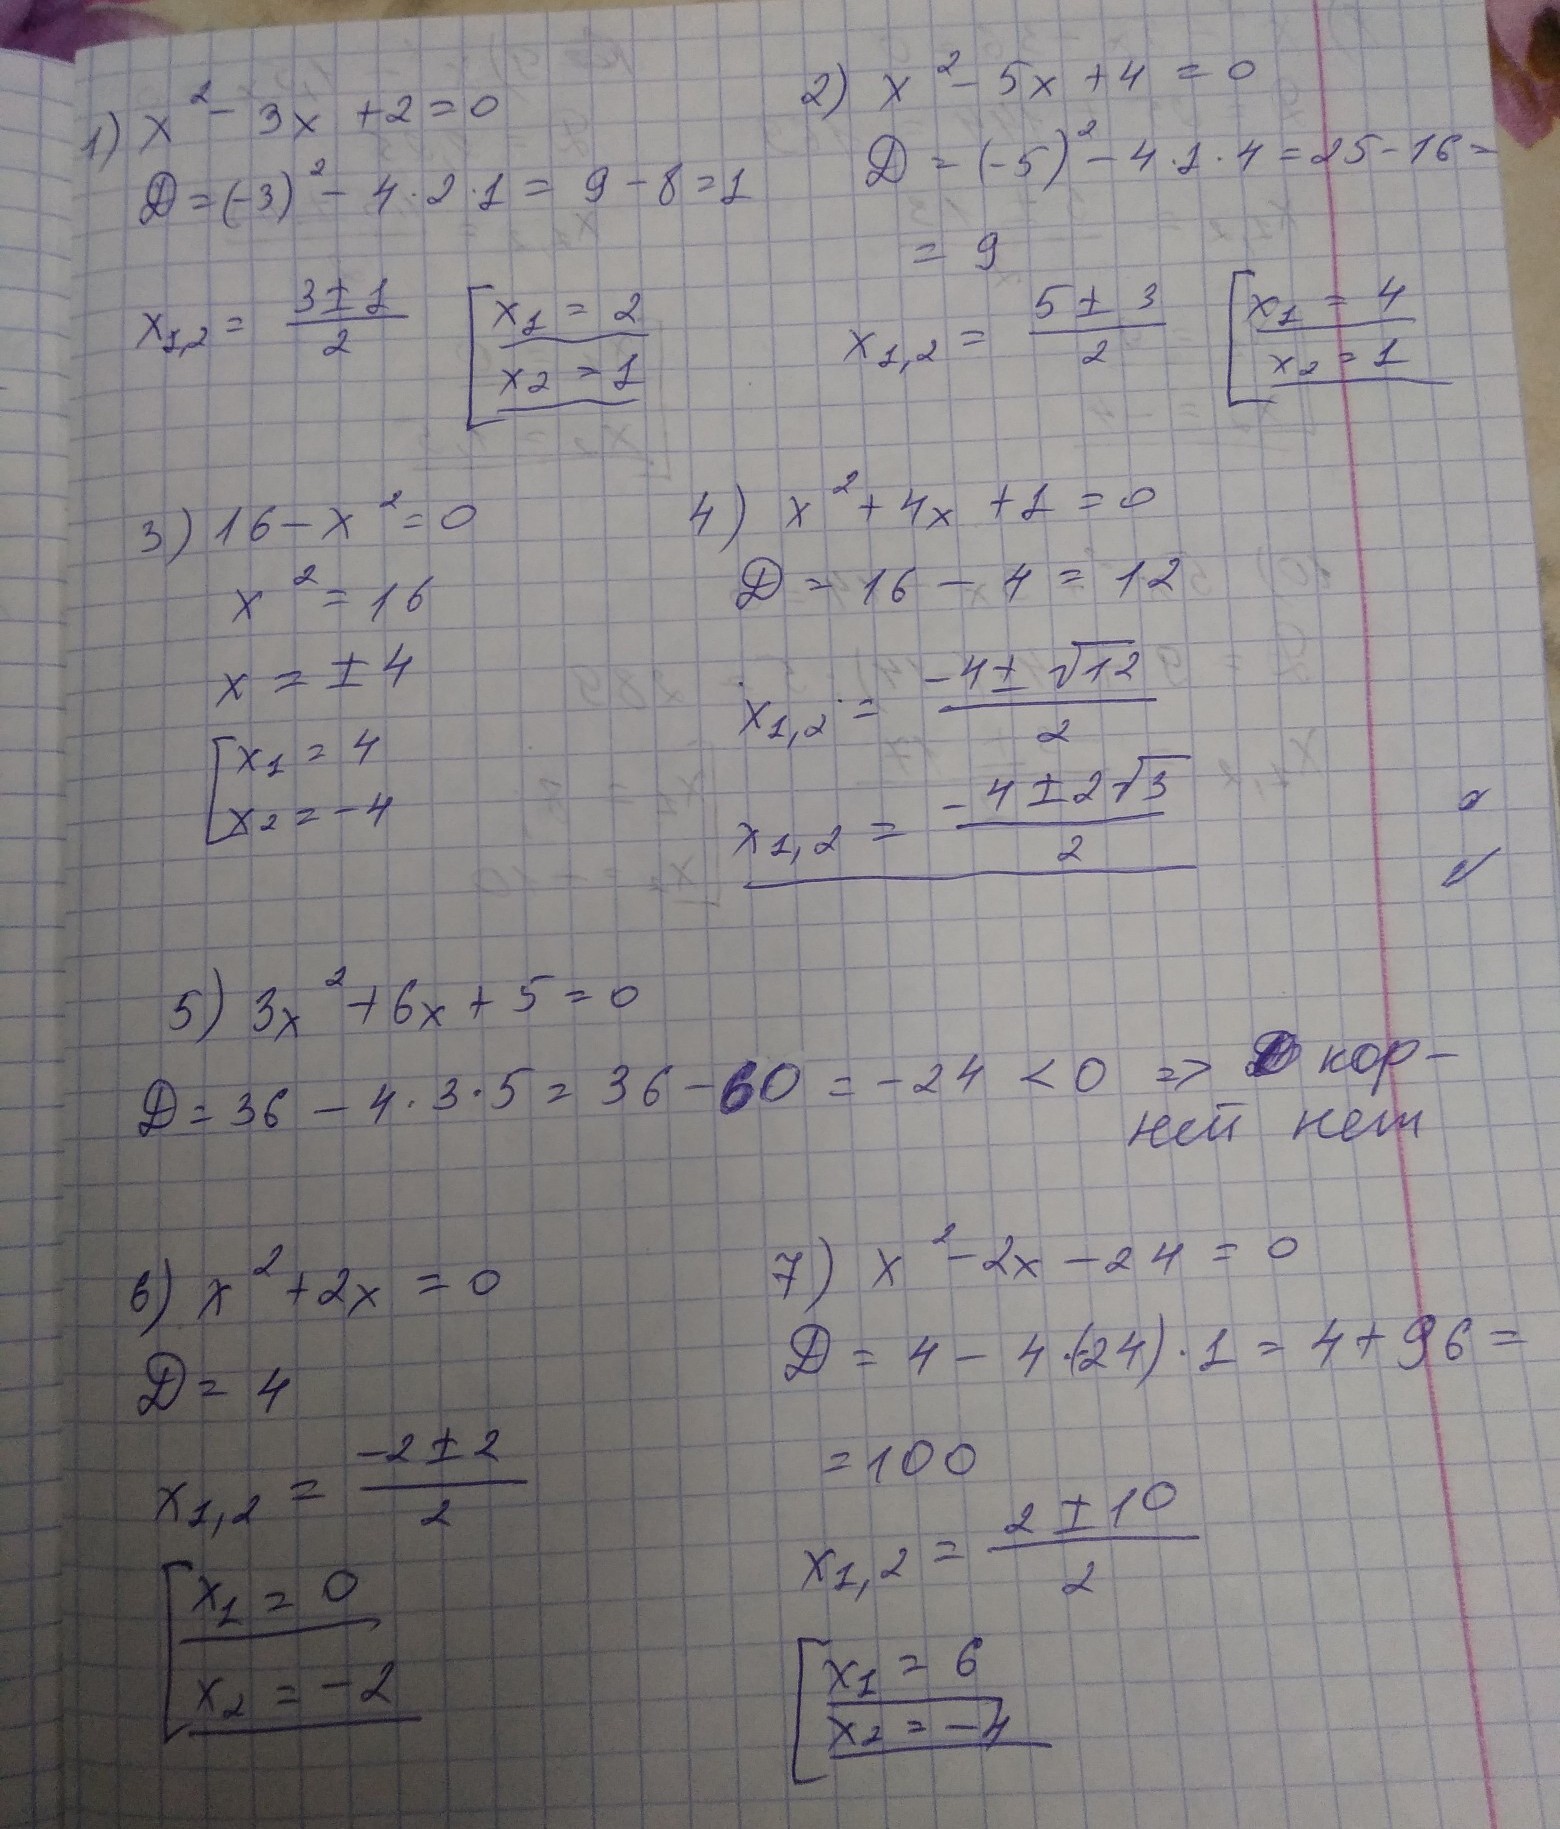 1) x² - 3x + 2 = 0
D = (-3)² - 4·2·1 = 9 - 8 = 1
x1,2 = (3 ± 1)/2 [x1 = 2
x2 = 1
2) x² - 5x + 4 = 0
D = (-5)² - 4·1·4 = 25 - 16 =
= 9
x1,2 = (5 ± 3)/2 [x1 = 4
x2 = 1
3) 16 - x² = 0
x² = 16
x = ± 4
[x1 = 4
x2 = -4
4) x² + 4x + 1 = 0
D = 16 - 4 = 12
x1,2 = (-4 ± √12)/2
x1,2 = (-4 ± 2√3)/2
5) 3x² + 6x + 5 = 0
D = 36 - 4·3·5 = 36 - 60 = -24 < 0 => кор-
ней нет
6) x² + 2x = 0
D = 4
x1,2 = (-2 ± 2)/2
[x1 = 0
x2 = -2
7) x² - 2x - 24 = 0
D = 4 - 4·(-24)·1 = 4 + 96 =
= 100
x1,2 = (2 ± 10)/2
[x1 = 6
x2 = -4